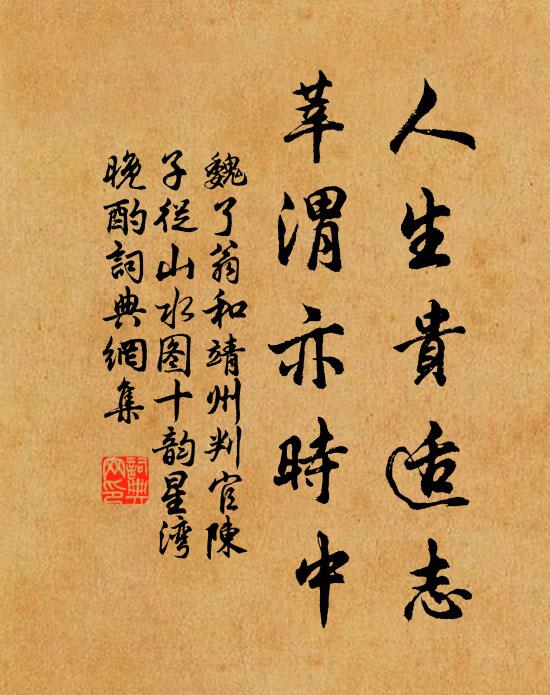 人生貴适志
莘渭亦時中
魏了翁和靖州判官陳
子從山水图十韵星湾
晚酌詞典網集
詞典网印